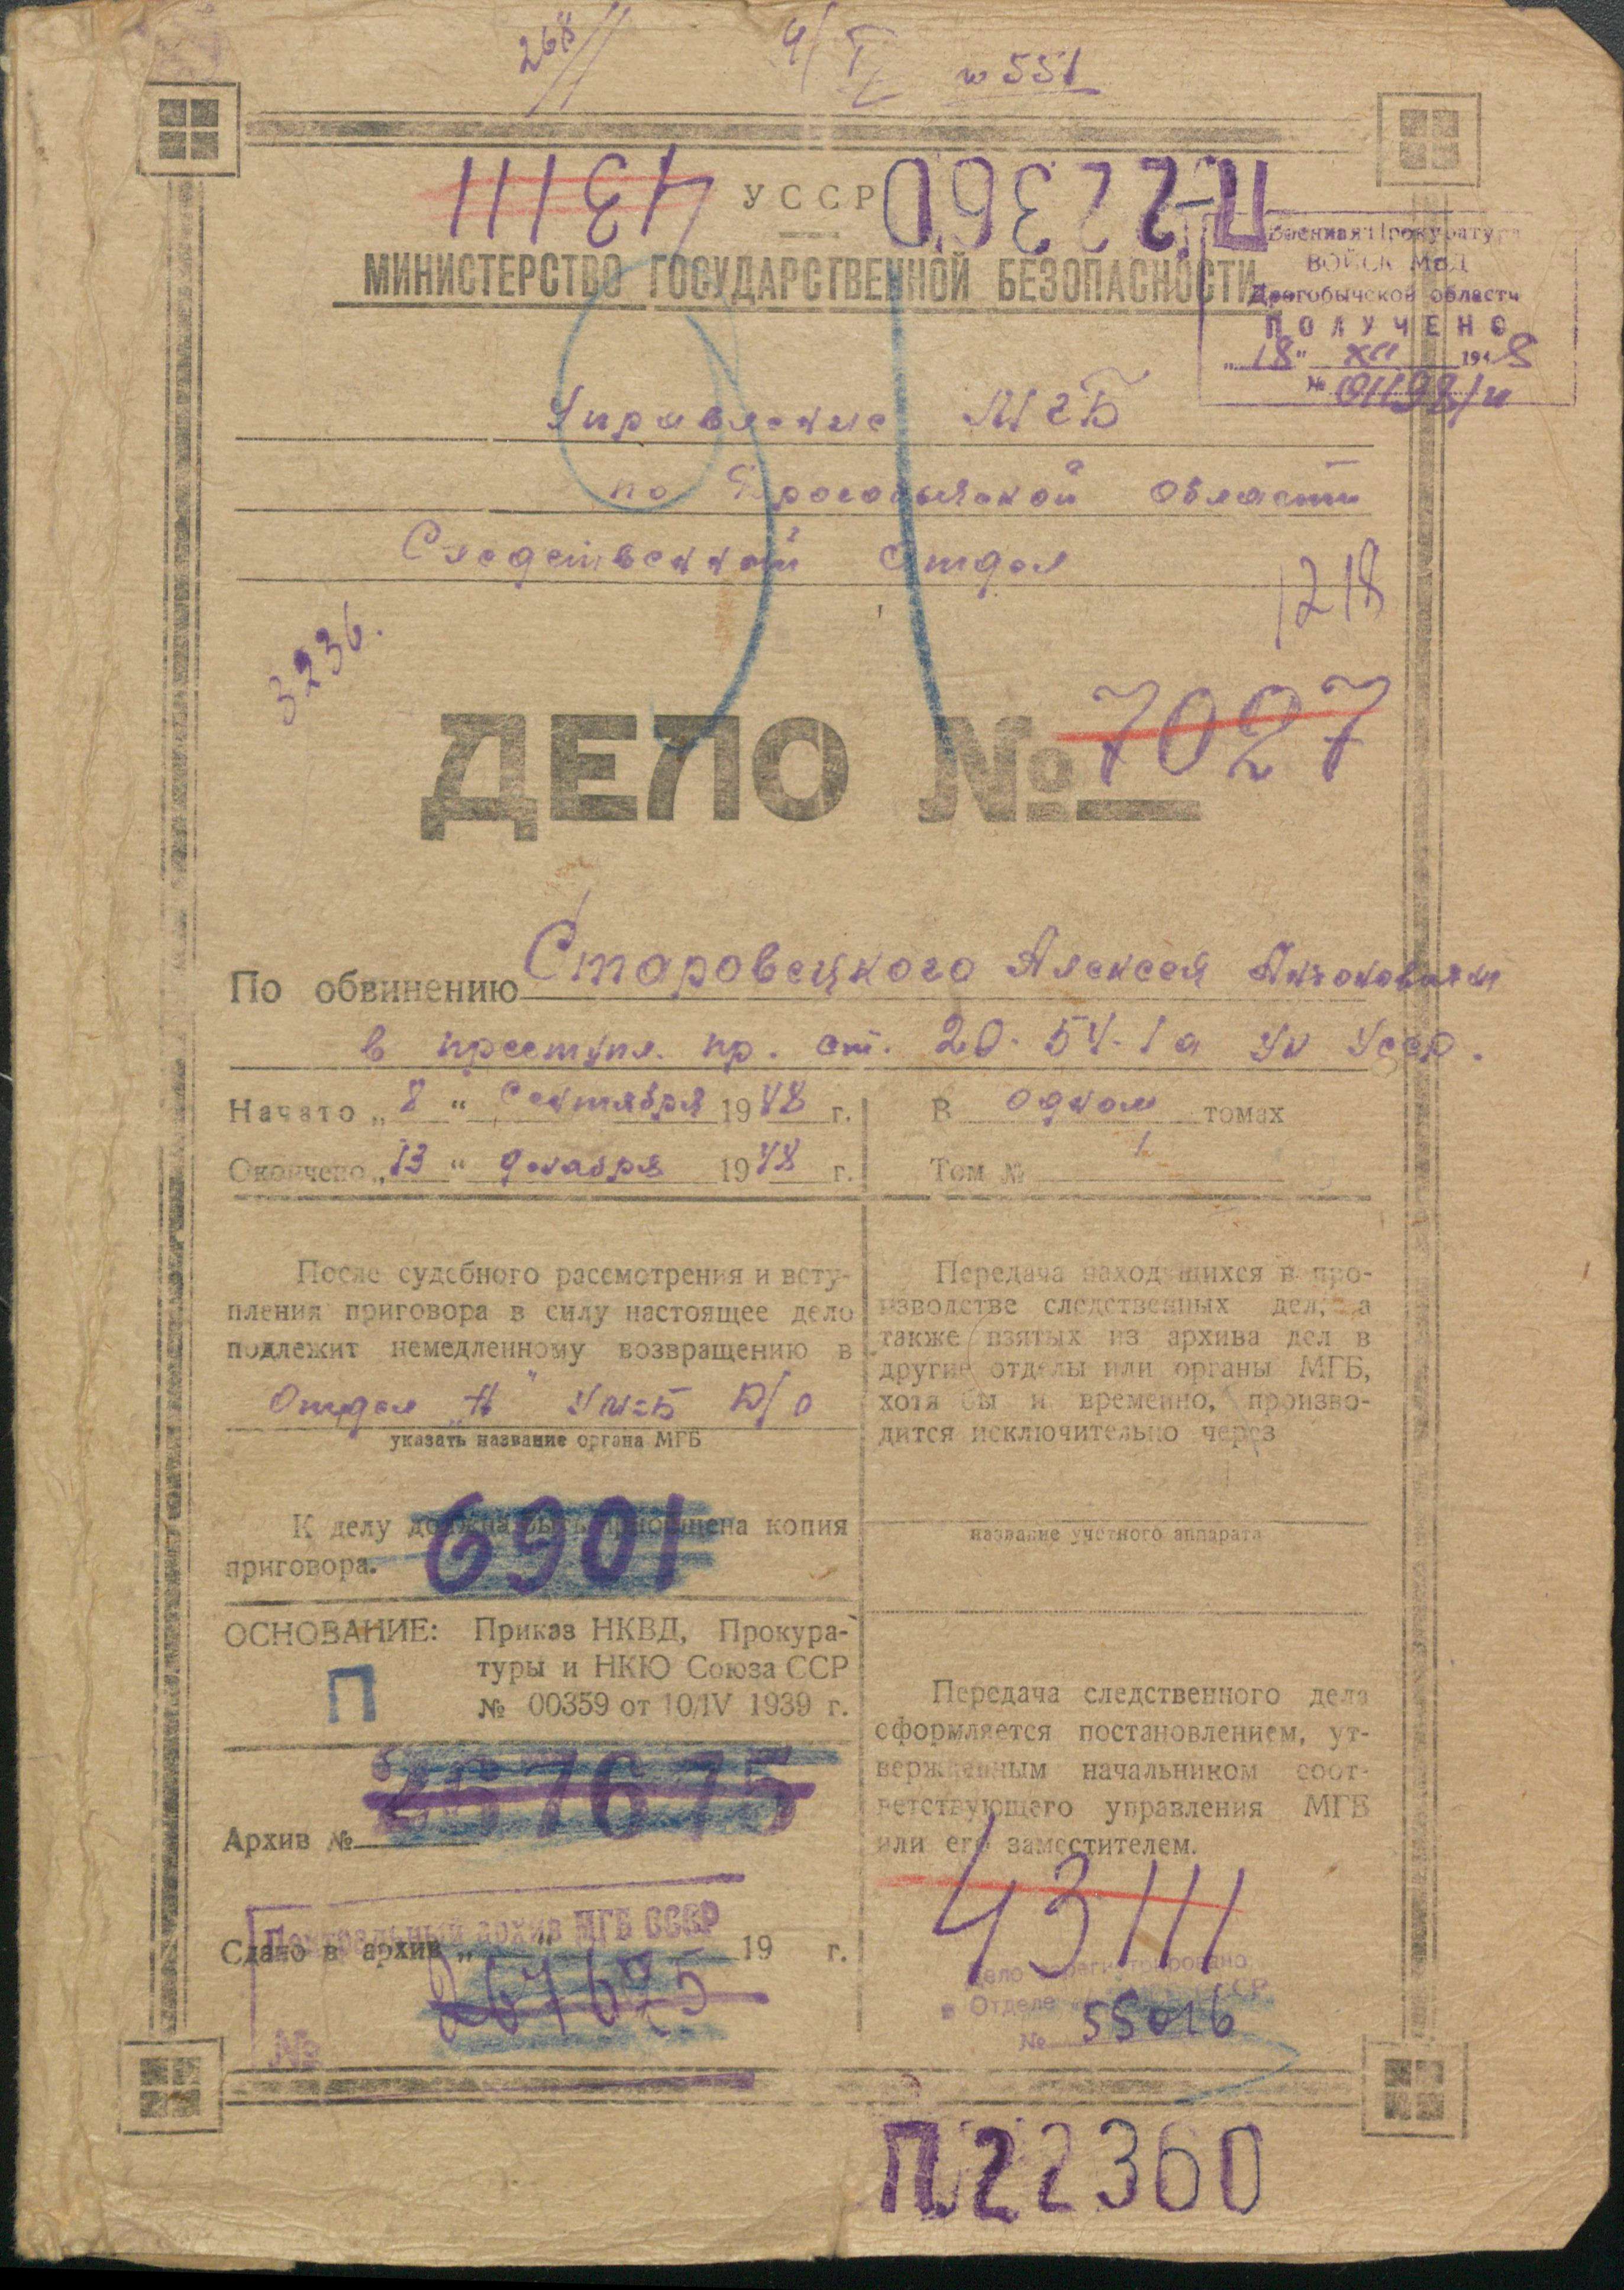 268
№ 551
43111
УССР
П-22360
МИНИСТЕРСТВО ГОСУДАРСТВЕННОЙ БЕЗОПАСНОСТИ
Военная Прокуратура
ВОЙСК МВД
Дрогобычской области
ПОЛУЧЕНО
„18“ XII 1948
№
Управление МГБ
по Дрогобычской области
Следственный Отдел
1218
3236.
ДЕЛО № 7027
По обвинению Старовецкого Алексея Антоновича
в преступл. пр. ст. 20-54-1а УК УССР.
Начато „8“ Сентября 1948 г.
В одном томах
Окончено „13“ декабря 1948 г.
Том №
После судебного рассмотрения и всту-
пления приговора в силу настоящее дело
подлежит немедленному возвращению в
Отдел „А“ УМГБ Д/о
указать название органа МГБ
К делу должна быть приобщена копия
приговора.
6901
ОСНОВАНИЕ: Приказ НКВД, Прокура-
туры и НКЮ Союза ССР
№ 00359 от 10/IV 1939 г.
П
267675
Архив №
Центральный архив МГБ СССР
Сдано в архив „ “ 19 г.
267675
№
Передача находящихся в про-
изводстве следственных дел, а
также взятых из архива дел в
другие отделы или органы МГБ,
хотя бы и временно, произво-
дится исключительно через
название учетного аппарата
Передача следственного дела
оформляется постановлением, ут-
вержденным начальником соот-
ветствующего управления МГБ
или его заместителем.
43111
Дело зарегистрировано
в Отделе
№ 55016
П22360